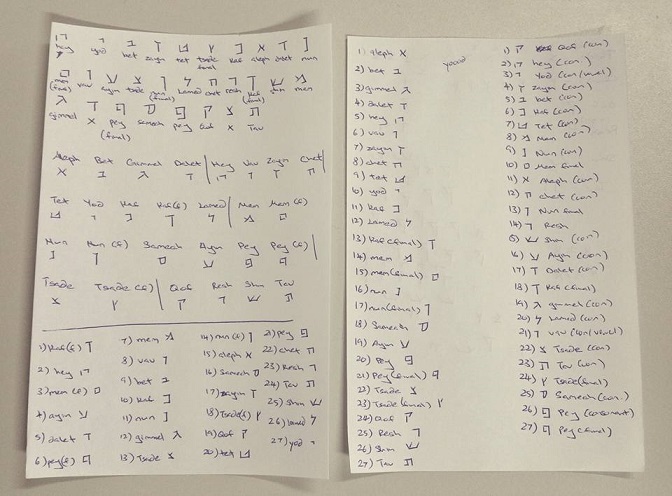 ה י ב ז ט ץ כ א ד נ
hey yod bet zayin tet tsade final kaf aleph dalet nun
ם ו ע צ ן ל ח ר ך ש מ
mem (final) vav ayin tsade nun (final) lamed chet resh kaf (final) shin mem
gimmel x pey (final) samech pey qof x Tav
Aleph Bet Gimmel Dalet | Hey Vav Zayin Chet |
א ב ג ד ה ו ז ח
Tet Yod Kaf Kaf(f) Lamed | Mem Mem (f)
ט י כ ך ל מ ם
Nun Nun (f) Samech Ayin Pey Pey (f) |
נ ן ס ע פ ף
Tsade Tsade (f) | Qof Resh Shin Tav
צ ץ ק ר ש ת
1) Kaf(f) ך
2) hey ה
3) mem (f) ם
4) ayin ע
5) dalet ד
6) pey(f) ף
7) mem מ
8) vav ו
9) bet ב
10) Kaf כ
11) nun נ
12) gimmel ג
13) Tsade צ
14) nun (f) ן
15) aleph א
16) Samech ס
17) zayin ז
18) Tsade(f) ץ
19) Qof ק
20) tet ט
21) pey פ
22) chet ח
23) Resh ר
24) Tav ת
25) Shin ש
26) lamed ל
27) yod י
1) aleph א
2) bet ב
3) gimmel ג
4) dalet ד
5) hey ה
6) vav ו
7) zayin ז
8) chet ח
9) tet ט
10) yod י
11) Kaf כ
12) Lamed ל
13) Kaf (final) ך
14) mem מ
15) mem (final) ם
16) nun נ
17) nun (final) ן
18) Samech ס
19) Ayin ע
20) Pey פ
21) Pey (final) ף
22) Tsade צ
23) Tsade (final) ץ
24) Qof ק
25) Resh ר
26) Shin ש
27) Tav ת
1) ק Qof (con)
2) ה hey (con)
3) י Yod (con/vowel)
4) ז zayin (con)
5) ב bet (con)
6) כ Kaf (con)
7) ט Tet (con)
8) מ Mem (con)
9) נ Nun (con)
10) ם Mem final
11) א Aleph (con)
12) ח chet (con)
13) ן Nun final
14) ר Resh
15) ש Shin (con)
16) ע Ayin (con)
17) ד Dalet (con)
18) ך Kaf (final)
19) ג gimmel (con)
20) ל Lamed (con)
21) ו vav (con/vowel)
22) צ Tsade (con)
23) ת Tav (con)
24) ץ Tsade (final)
25) ס Samech (con)
26) פ Pey (consonant)
27) ף Pey (final)